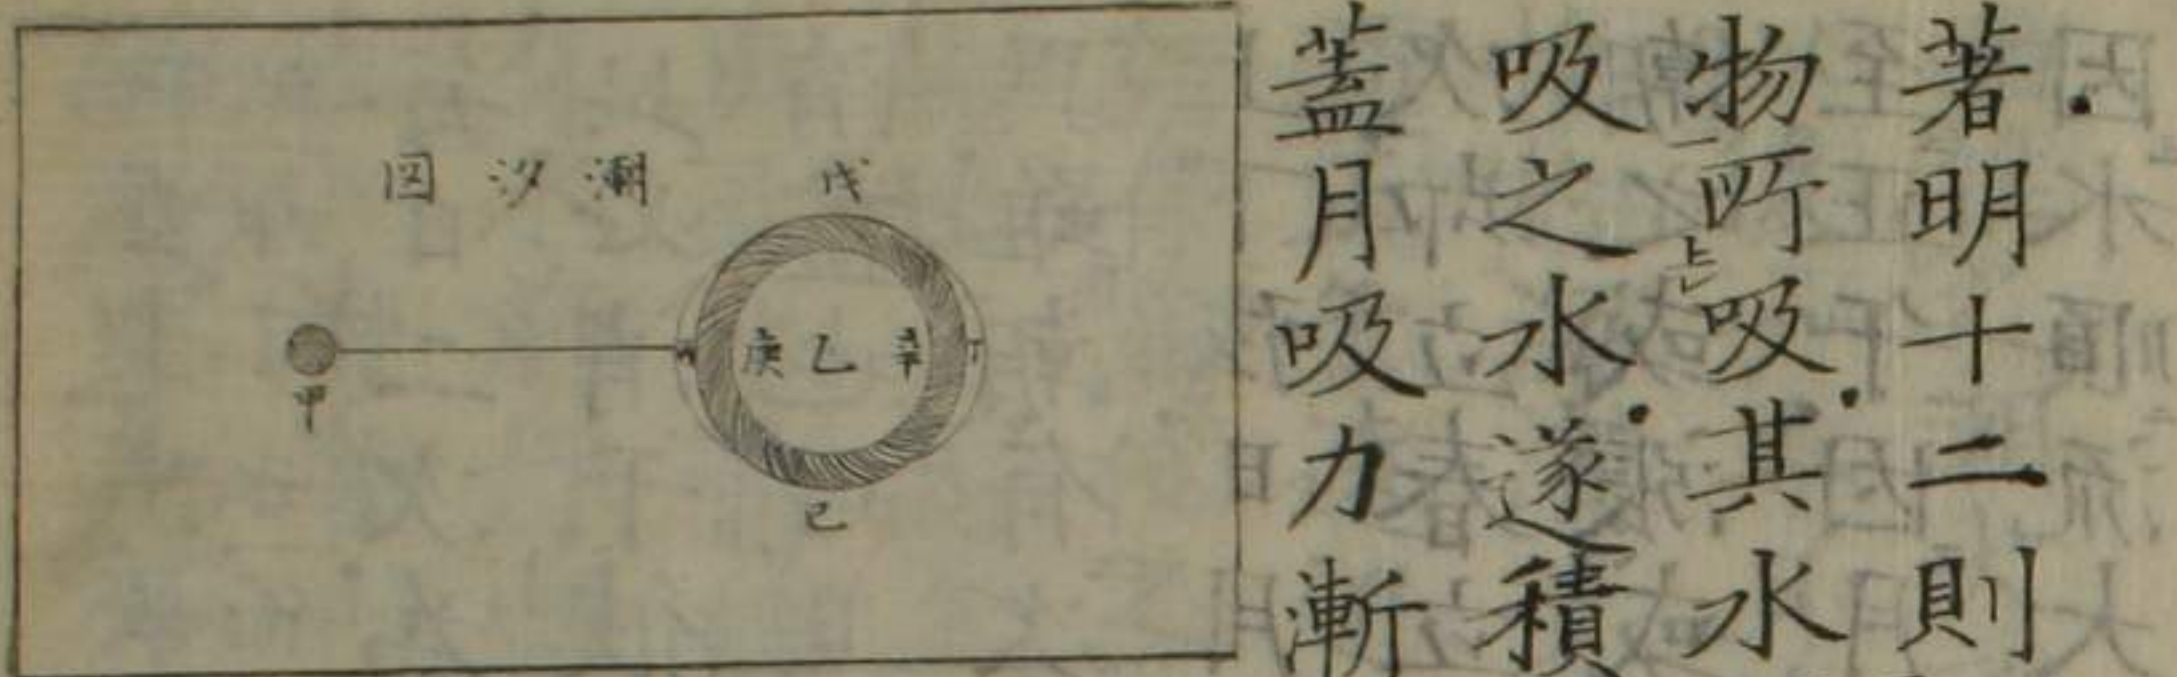 著明十二則
物所吸其水
吸之水遂積
蓋月吸力漸
潮汐図
戊
庚乙辛
己
甲